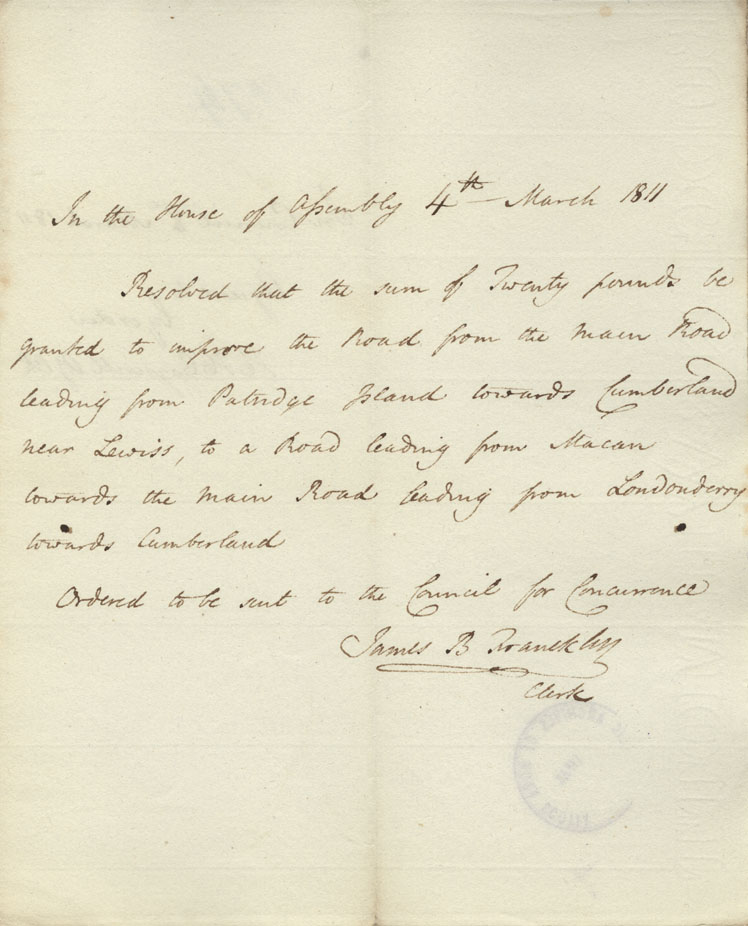 In the House of Assembly 4th March 1811
Resolved that the sum of Twenty pounds be
granted to improve the Road from the Main Road
leading from Patridge Island towards Cumberland
near Lewiss, to a Road leading from Macan
towards the Main Road leading from Londonderry
towards Cumberland
Ordered to be sent to the Council for Concurrence
James B Franckly
Clerk